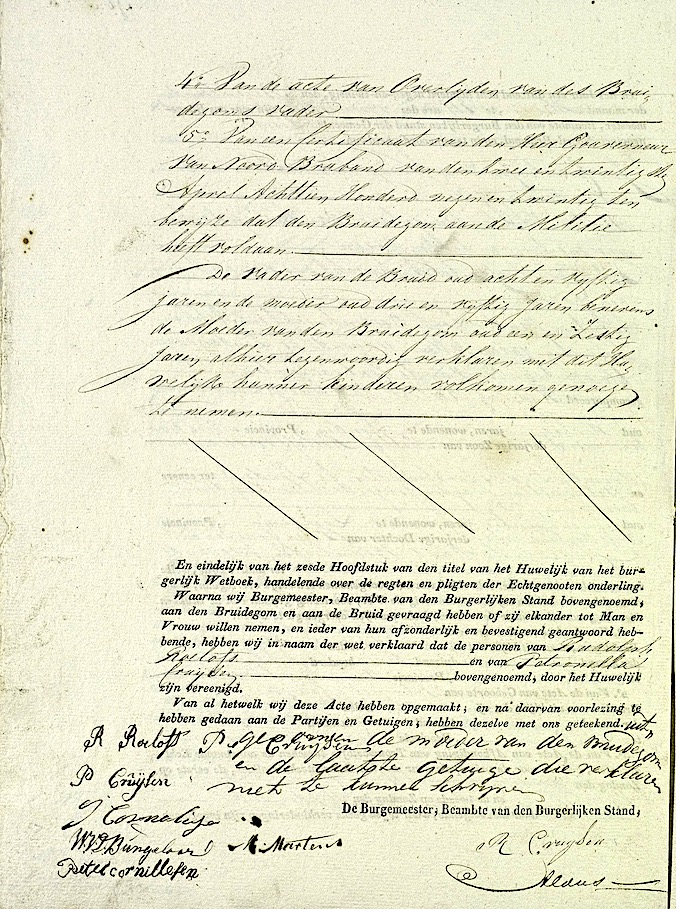 4o. Van de acte van Overlijden van des Brui-
degoms vader
5o. Van een Certificaat van den Heer Gouverneur
van Noord Braband van den twee en twintig ste
April Achttien Honderd negen en twintig ten
bewijze dat den Bruidegom aan de Militie
heeft voldaan.
De Vader van de Bruid oud acht en vijftig
jaren en de moeder oud drie en vijftig jaren benevens
de Moeder van den Bruidegom oud een en Zestig
jaren, alhier tegenwoordig verklaren met dit Hu-
welijk hunner kinderen volkomen genoege
te nemen.
En eindelijk van het zesde Hoofdstuk van den titel van het Huwelijk van het bur-
gerlijk Wetboek, handelende over de regten en pligten der Echtgenooten onderling.
Waarna wij Burgemeester, Beambte van den Burgerlijken Stand bovengenoemd,
aan den Bruidegom en aan de Bruid gevraagd hebben of zij elkander tot Man en
Vrouw willen nemen, en ieder van hun afzonderlijk en bevestigend geantwoord heb-
bende, hebben wij in naam der wet verklaard dat de personen van Rudolph
Roelofs en van Petronella
Cruijsen bovengenoemd, door het Huwelijk
zijn vereenigd.
Van al hetwelk wij deze Acte hebben opgemaakt; en na daarvan voorlezing te
hebben gedaan aan de Partijen en Getuigen; hebben dezelve met ons geteekend. uit-
genomen de moeder van den bruidegom
en de laatste getuige die verklaren
niet te kunnen schrijven
R Roelofs P. Cruijsen
P Cruijsen
J Cornelisse
De Burgemeester; Beambte van den Burgerlijken Stand,
M. Martens
R Cruijsen
Pieter cornillesen